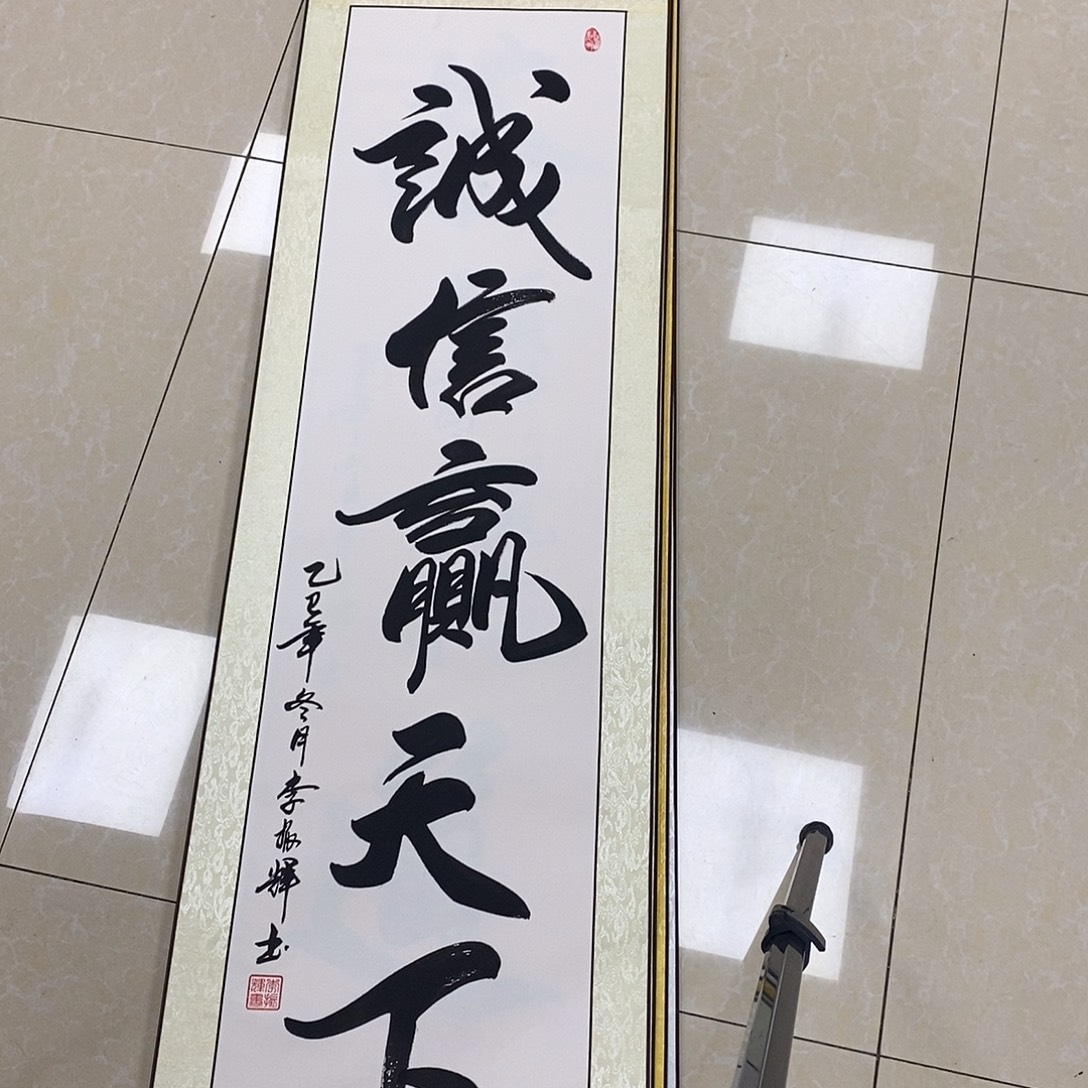 誠信贏天下
乙巳年冬月李振輝書